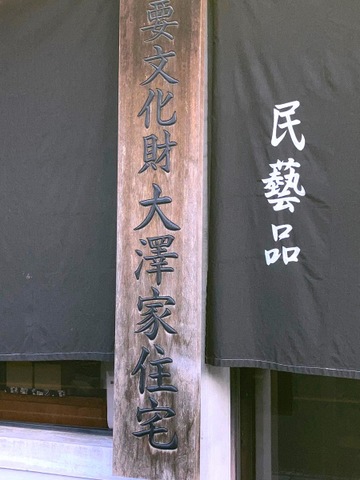 民藝品
要文化財大澤家住宅